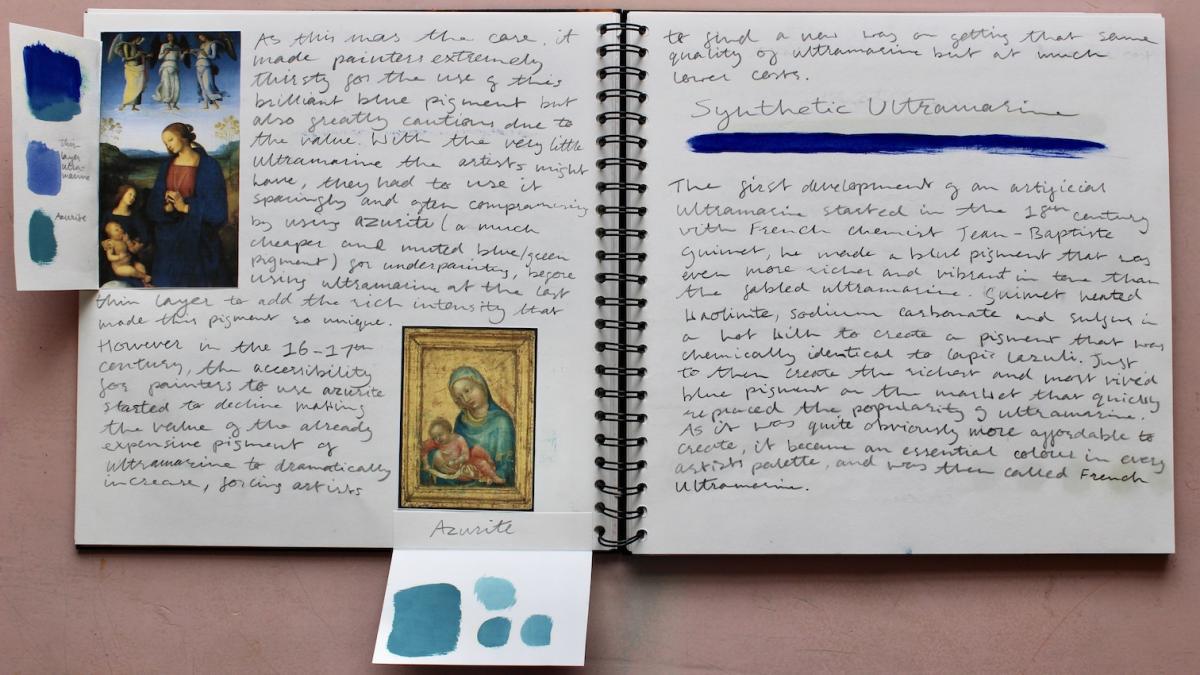 this
layer
ultra-
marine
Azurite
As this was the case, it
made painters extremely
thirsty for the use of this
brilliant blue pigment but
also greatly cautious due to
the value. With the very little
ultramarine the artists might
have, they had to use it
sparingly and often compromising
by using azurite (a much
cheaper and muted blue/green
pigment) for underpainting, before
using ultramarine at the last
thin layer to add the rich intensity that
made this pigment so unique.
However in the 16-17th
century, the accessibility
for painters to use azurite
started to decline making
the value of the already
expensive pigment of
ultramarine to dramatically
increase, forcing artists
Azurite
to find a new way on getting that same
quality of ultramarine but at much
lower costs.
Synthetic Ultramarine
The first development of an artificial
ultramarine started in the 18th century
with French chemist Jean-Baptiste
Guimet, he made a blue pigment that was
even more richer and vibrant in tone than
the fabled ultramarine. Guimet heated
kaolinite, sodium carbonate and sulfur in
a hot kiln to create a pigment that was
chemically identical to lapis lazuli. Just
to then create the richest and most vived
blue pigment on the market that quickly
replaced the popularity of ultramarine.
As it was quite obviously more affordable to
create, it became an essential colour in every
artists palette, and was then called French
Ultramarine.